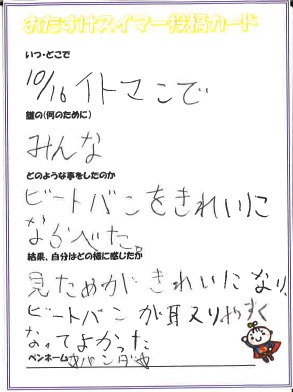 おたすけスイマー投稿カード
いつ・どこで
10/16 イトマこで
誰の(何のために)
みんな
どのような事をしたのか
ビートバンをきれいに
ならべた。
結果、自分はどの様に感じたか
見ためがきれいになり、
ビートバンが耳又りやすく
なってよかった
ペンネーム ☆パンダ☆